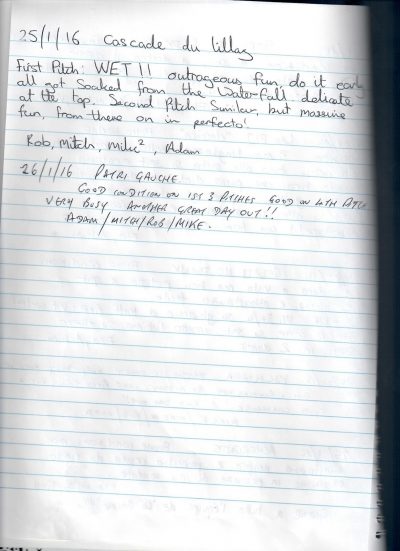 25/1/16 Cascade du Lillaz
First Pitch: WET!! outrageous fun, do it early
all got Soaked from the Waterfall, delicate
at the top. Second Pitch Similar, but massive
fun, from there on in perfecto!
Rob, Mitch, Mike², Adam
26/1/16 PATRI GAUCHE
GOOD CONDITION ON 1ST 3 PITCHES GOOD ON 4TH PITCH
VERY BUSY ANOTHER GREAT DAY OUT!!
ADAM/MITCH/ROB/MIKE.